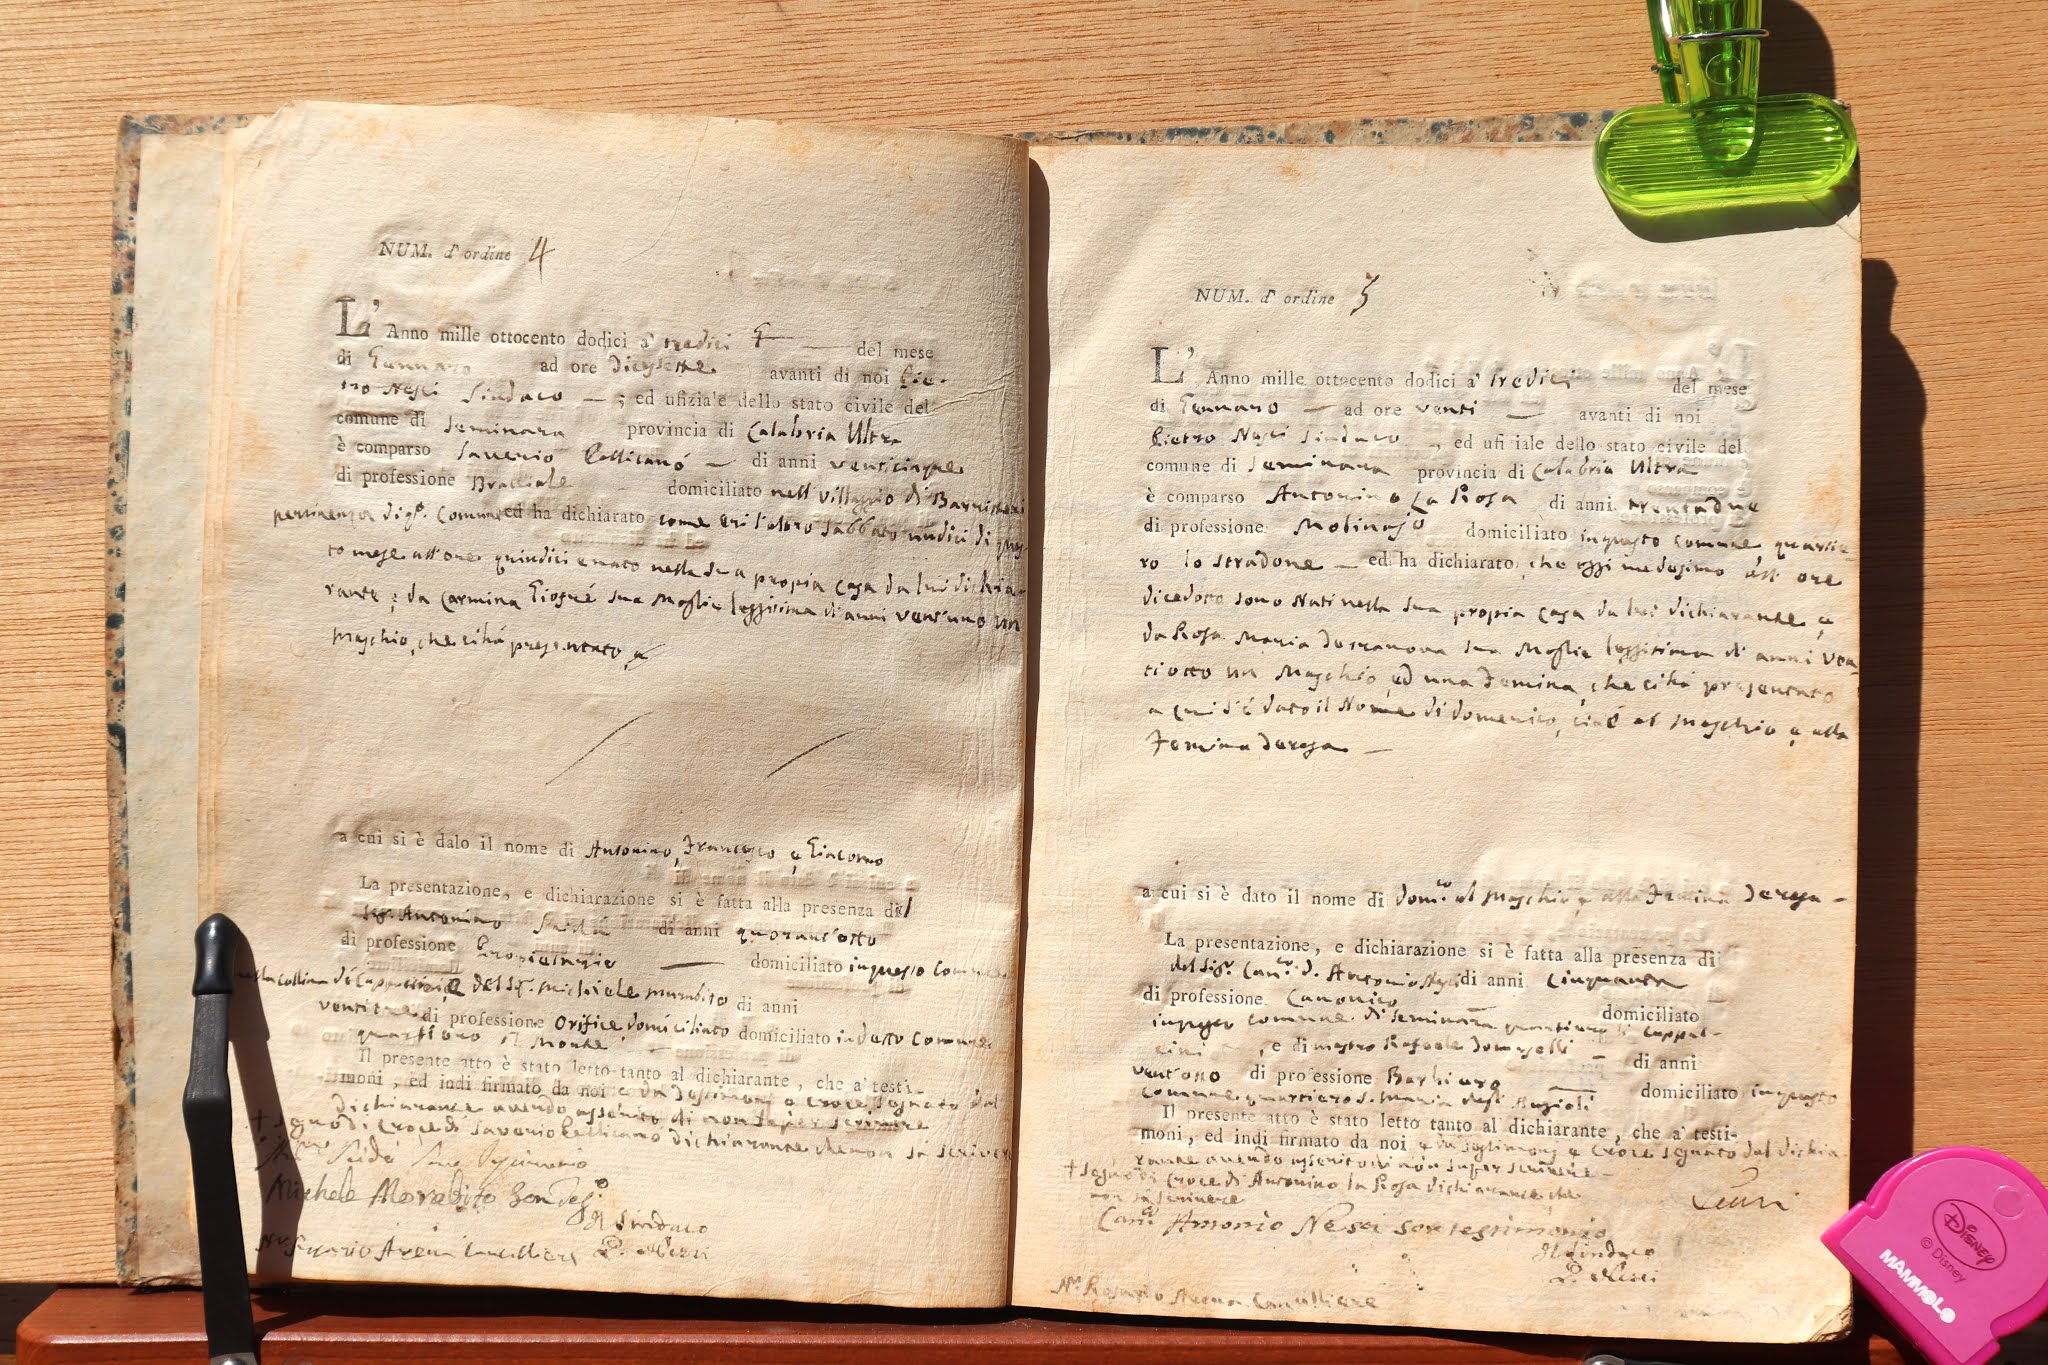 NUM. d' ordine 4
L' Anno mille ottocento dodici a' tredici del mese
di Gennaro ad ore Diecisette avanti di noi Pie-
tro Nesci Sindaco — ; ed ufiziale dello stato civile del
comune di Seminara provincia di Calabria Ultra
è comparso Saverio Pellicanó — di anni venticinque
di professione Bracciale domiciliato nell'villaggio di Barritteri
pertinenza di q.o Comune ed ha dichiarato come eri l'altro Sabbato undici di ques
to mese all'ore quindici è nato nella sua propia casa da lui dichia-
rante e da Carmina Giofré sua Moglie legitima di anni vent'uno un
Maschio, che ci há presentato
a cui si è dato il nome di Antonino, Francesco e Giacomo
La presentazione, e dichiarazione si è fatta alla presenza del
Sig. Antonino di anni quarant'otto
di professione Proprietario — domiciliato in questo Comune
nella Collina di Cappuccini e del Sig. Michiele Murabito di anni
ventitre di professione Orifice domiciliato domiciliato in detto Comune
quartiero il Monte
Il presente atto è stato letto tanto al dichiarante, che a' testi-
moni, ed indi firmato da noi e da Testimonj e Croce segnato dal
Dichiarante avendo asserito di non saper scrivere
+ segno di Croce di Saverio Pellicano dichiarante che non sa scrivere
Michele Morabito
Il Sindaco
P. Nesci
Cancelliere
NUM. d' ordine 5
L' Anno mille ottocento dodici a' tredici del mese
di Gennaro — ad ore venti — avanti di noi
Pietro Nesci Sindaco — , ed ufiziale dello stato civile del
comune di Seminara provincia di Calabria Ultra
è comparso Antonino La Rosa di anni trentadue
di professione Molinajo domiciliato in questo comune quartie
ro lo stradone — ed ha dichiarato, che oggi medesimo all' ore
dicedotto sono Nati nella sua propia casa da lui dichiarante e
da Rosa Maria Terranova sua Moglie legitima di anni ven-
tiotto un Maschio, ed una Femina, che ci há presentato
a cui s'é dato il Nome di Domenico, cioé al Maschio e alla
Femina Teresa —
a cui si è dato il nome di Dom.co al Maschio e alla Femina Teresa -
La presentazione, e dichiarazione si è fatta alla presenza di
del Sig. Can.co D. Antonio Nesci di anni Cinquanta
di professione Canonico — domiciliato
in questo Comune di Seminara quartiero li Cappuc-
cini , e di mastro Rafaele Tomaselli — di anni
vent'otto di professione Barbiero — domiciliato in questo
Comune quartiero S. Maria degl'Angioli
Il presente atto è stato letto tanto al dichiarante, che a' testi-
moni, ed indi firmato da noi e da Testimonj e Croce segnato dal dichia
rante avendo asserito di non saper scrivere -
+ segno di Croce di Antonino la Rosa dichiarante che
non sa scrivere
Can.co Antonio Nesci son testimonio
Il Sindaco
P. Nesci
N.r Rosario Arena Cancelliere
Disney
© Disney
MAMMOLO